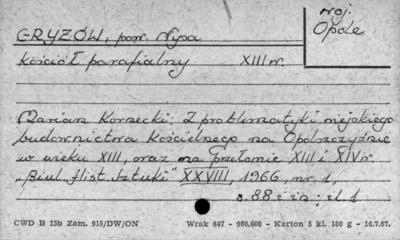 woj.
Opole
GRYZÓW, pow. Nysa
Kościół parafialny XIII w.
Marian Kornecki: Z problematyki miejskiego
budownictwa Kościelnego na Opolszczyźnie
w wieku XIII, oraz na przełomie XIII i XIV w.
"Biul. Hist. Sztuki" XXVIII, 1966, nr 1,
s. 88 i in; il. 1
CWD B 15b Zam. 915/DW/ON Wrak 647 - 960.000 - Karton 5 kl. 180 g - 10.7.67.